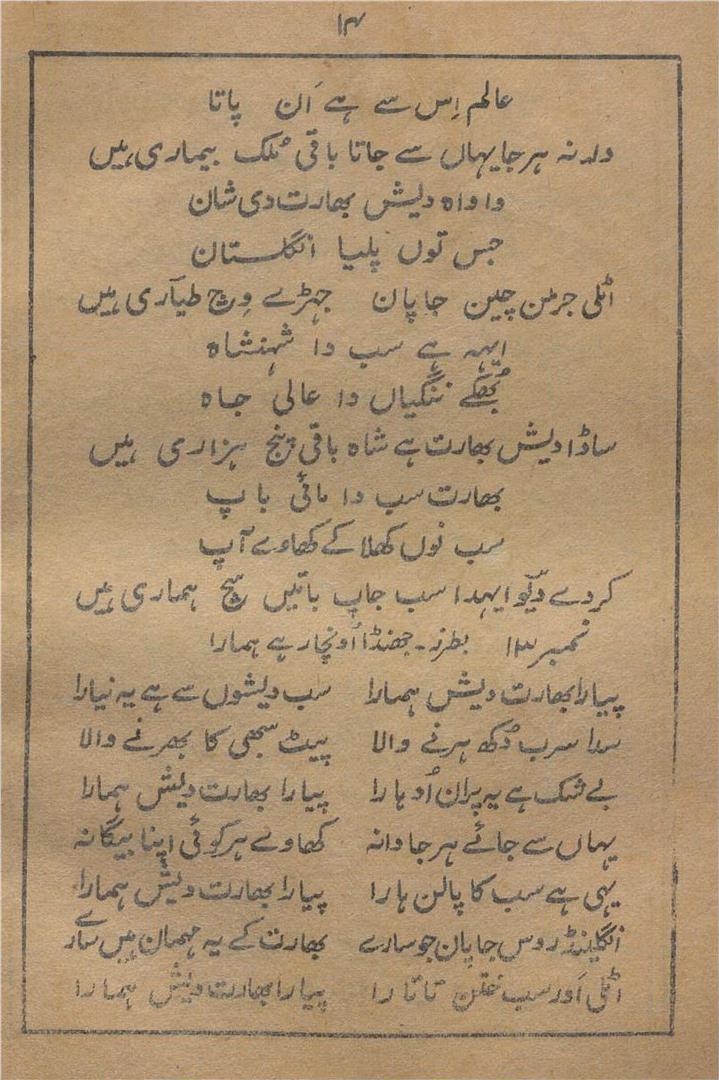 ۱۴
عالم اِس سے ہے اَن پاتا
ولد نہ ہر جا یہاں سے جاتا باقی مُلک بیماری ہیں
وا واہ دیش بھارت دی شان
جس توں پلیا انگلستان
اٹلی جرمن چین جاپان جہڑے وِچ طیّاری ہیں
ایہہ ہے سب دا شہنشاہ
بُھکے ننگیاں دا عالی جاہ
ساڈا دیش بھارت ہے شاہ باقی پنج ہزاری ہیں
بھارت سب دا مائی باپ
سب نوں کھلا کے کھاوے آپ
کر دے دیکو ایہدا سب جاپ باتیں سچ ہماری ہیں
نمبر ۱۳ بطرز۔ جھنڈا اُونچا رہے ہمارا
پیارا بھارت دیش ہمارا سب دیشوں سے ہے یہ نیارا
سدا سرب دُکھ ہرنے والا پیٹ سبھی کا بھرنے والا
بے شک ہے یہ پران اُدہارا پیارا بھارت دیش ہمارا
یہاں سے جائے ہر جا دانہ کھاوے ہر کوئی اپنا بیگانہ
یہی ہے سب کا پالن ہارا پیارا بھارت دیش ہمارا
انگلینڈ روس جاپان جو سارے بھارت کے یہ مہمان ہیں سارے
اٹلی اَور سب ختن تاتارا پیارا بھارت دیش ہمارا